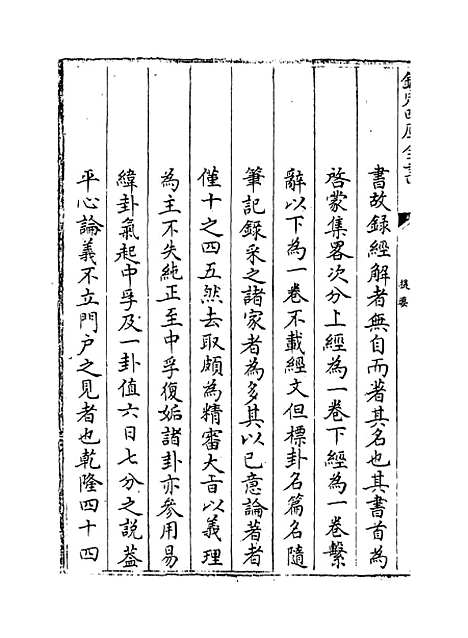 欽定四庫全書
提要
書故録經解者無自而著其名也其書首為
啓蒙集畧次分上經為一卷下經為一卷繫
辭以下為一卷不載經文但標卦名篇名隨
筆記録采之諸家者為多其以已意論著者
僅十之四五然去取頗為精審大旨以義理
為主不失純正至中孚復姤諸卦亦參用易
緯卦氣起中孚及一卦值六日七分之說葢
平心論義不立門户之見者也乾隆四十四